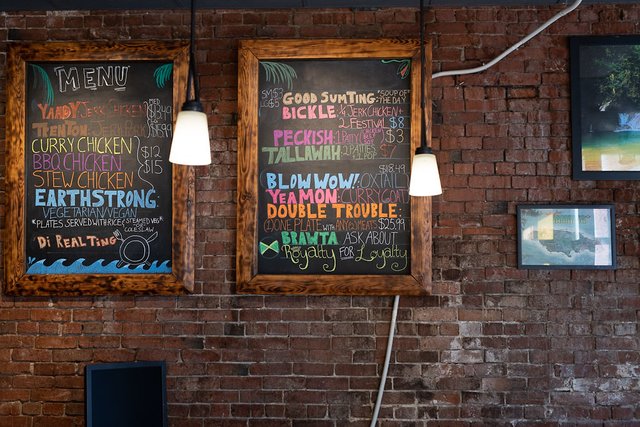 MENU
YAADY JERK CHICKEN
TRENTON
CURRY CHICKEN
BBQ CHICKEN
STEW CHICKEN
$12
$15
EARTHSTRONG:
VEGETARIAN/VEGAN
*PLATES SERVED WITH RICE STEAMED VEG COLESLAW
Di REAL TING
SM $3
LG $5
GOOD SUMTING: *SOUP OF THE DAY
BICKLE JERK CHICKEN +
2 FESTIVAL $8
PECKISH
$3
TALLAWAH 2 PATTIES
$18.49
BLOW WOW! OXTAIL
YEA MON: CURRY GOAT
DOUBLE TROUBLE:
ONE PLATE WITH ANY 2 MEATS $25.99
BRAWTA ASK ABOUT
Royalty FOR Loyalty